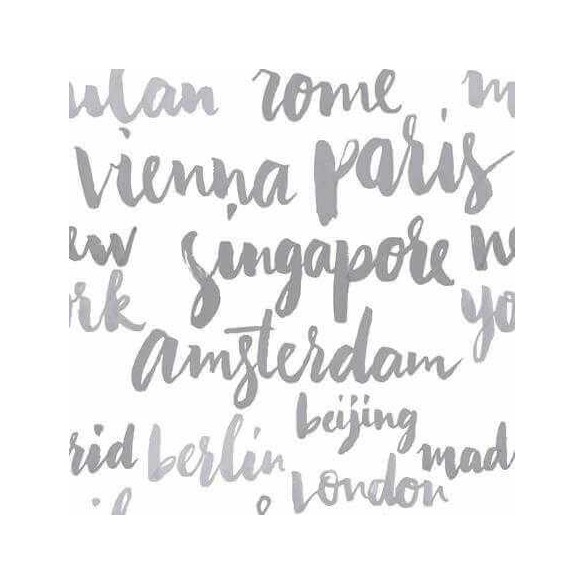 ulan rome m
vienna paris
ew singapore n
rk yo
amsterdam
beijing
rid berlin mad
london